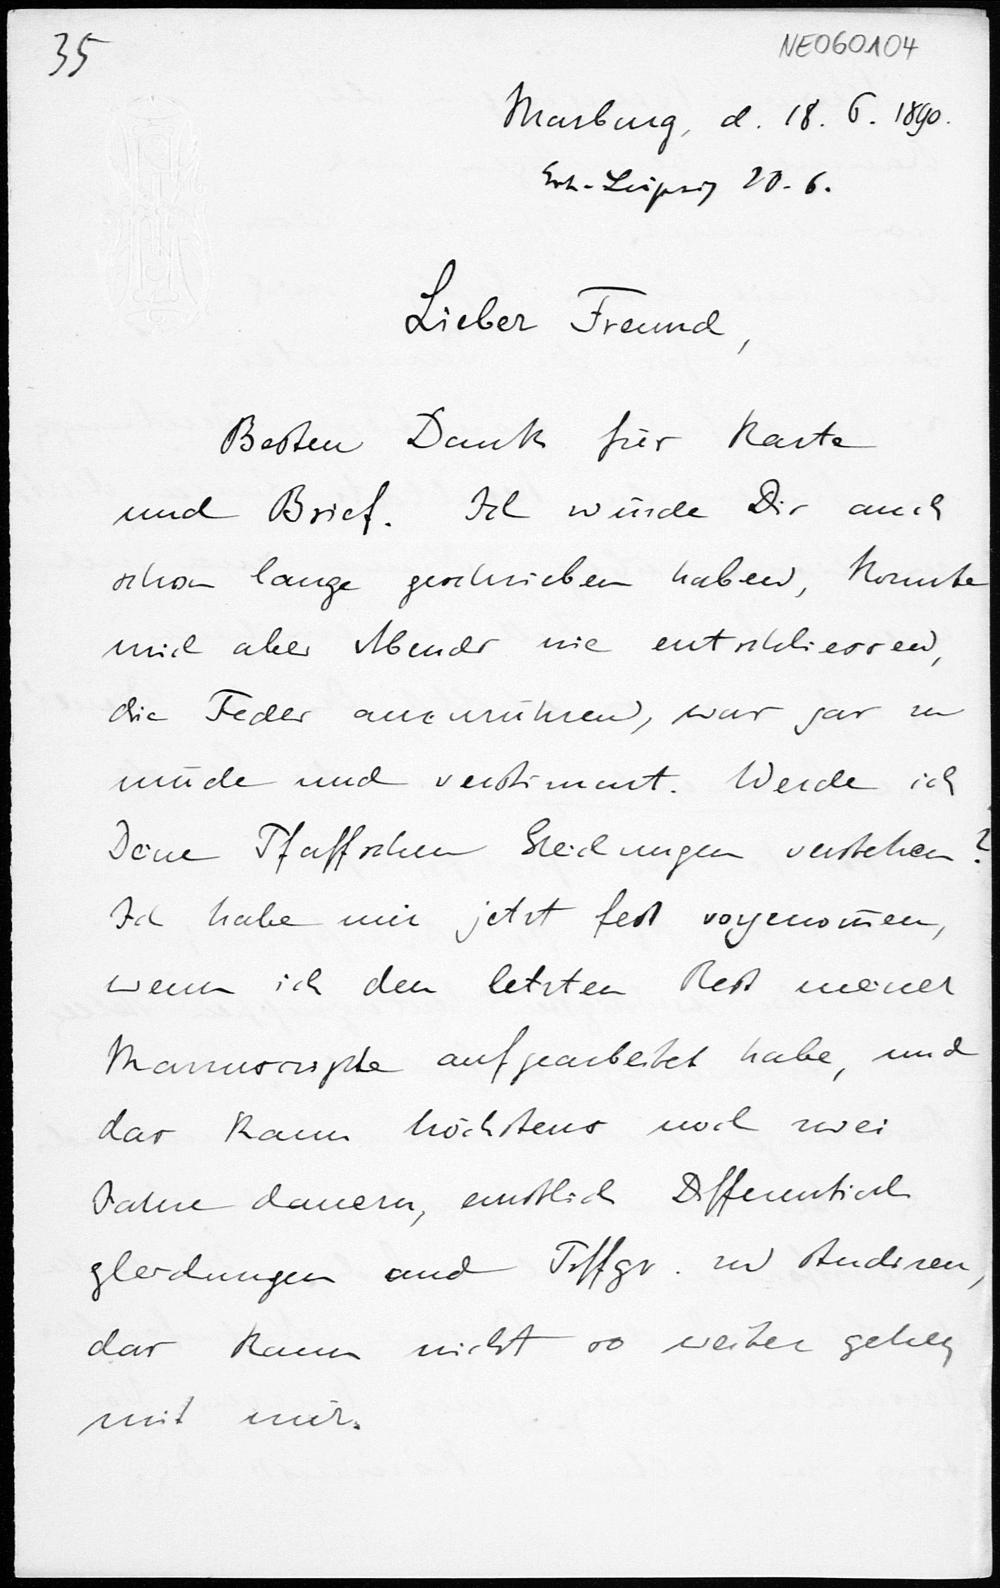 35
NE060104
Marburg, d. 18. 6. 1890.
Erh. Leipzig 20. 6.
Lieber Freund,
Besten Dank für Karte
und Brief. Ich würde Dir auch
schon lange geschrieben haben, konnte
mich aber Abends nie entschliessen,
die Feder anzurühren, war gar zu
müde und verstimmt. Werde ich
Deine Pfaffschen Gleichungen verstehen?
Ich habe mir jetzt fest vorgenom̅en,
wenn ich den letzten Rest meiner
Manuscripte aufgearbeitet habe, und
das kann höchstens noch zwei
Jahre dauern, endlich Differential
gleichungen und Trffgr. zu studiren,
das kann nicht so weiter gehen
mit mir.